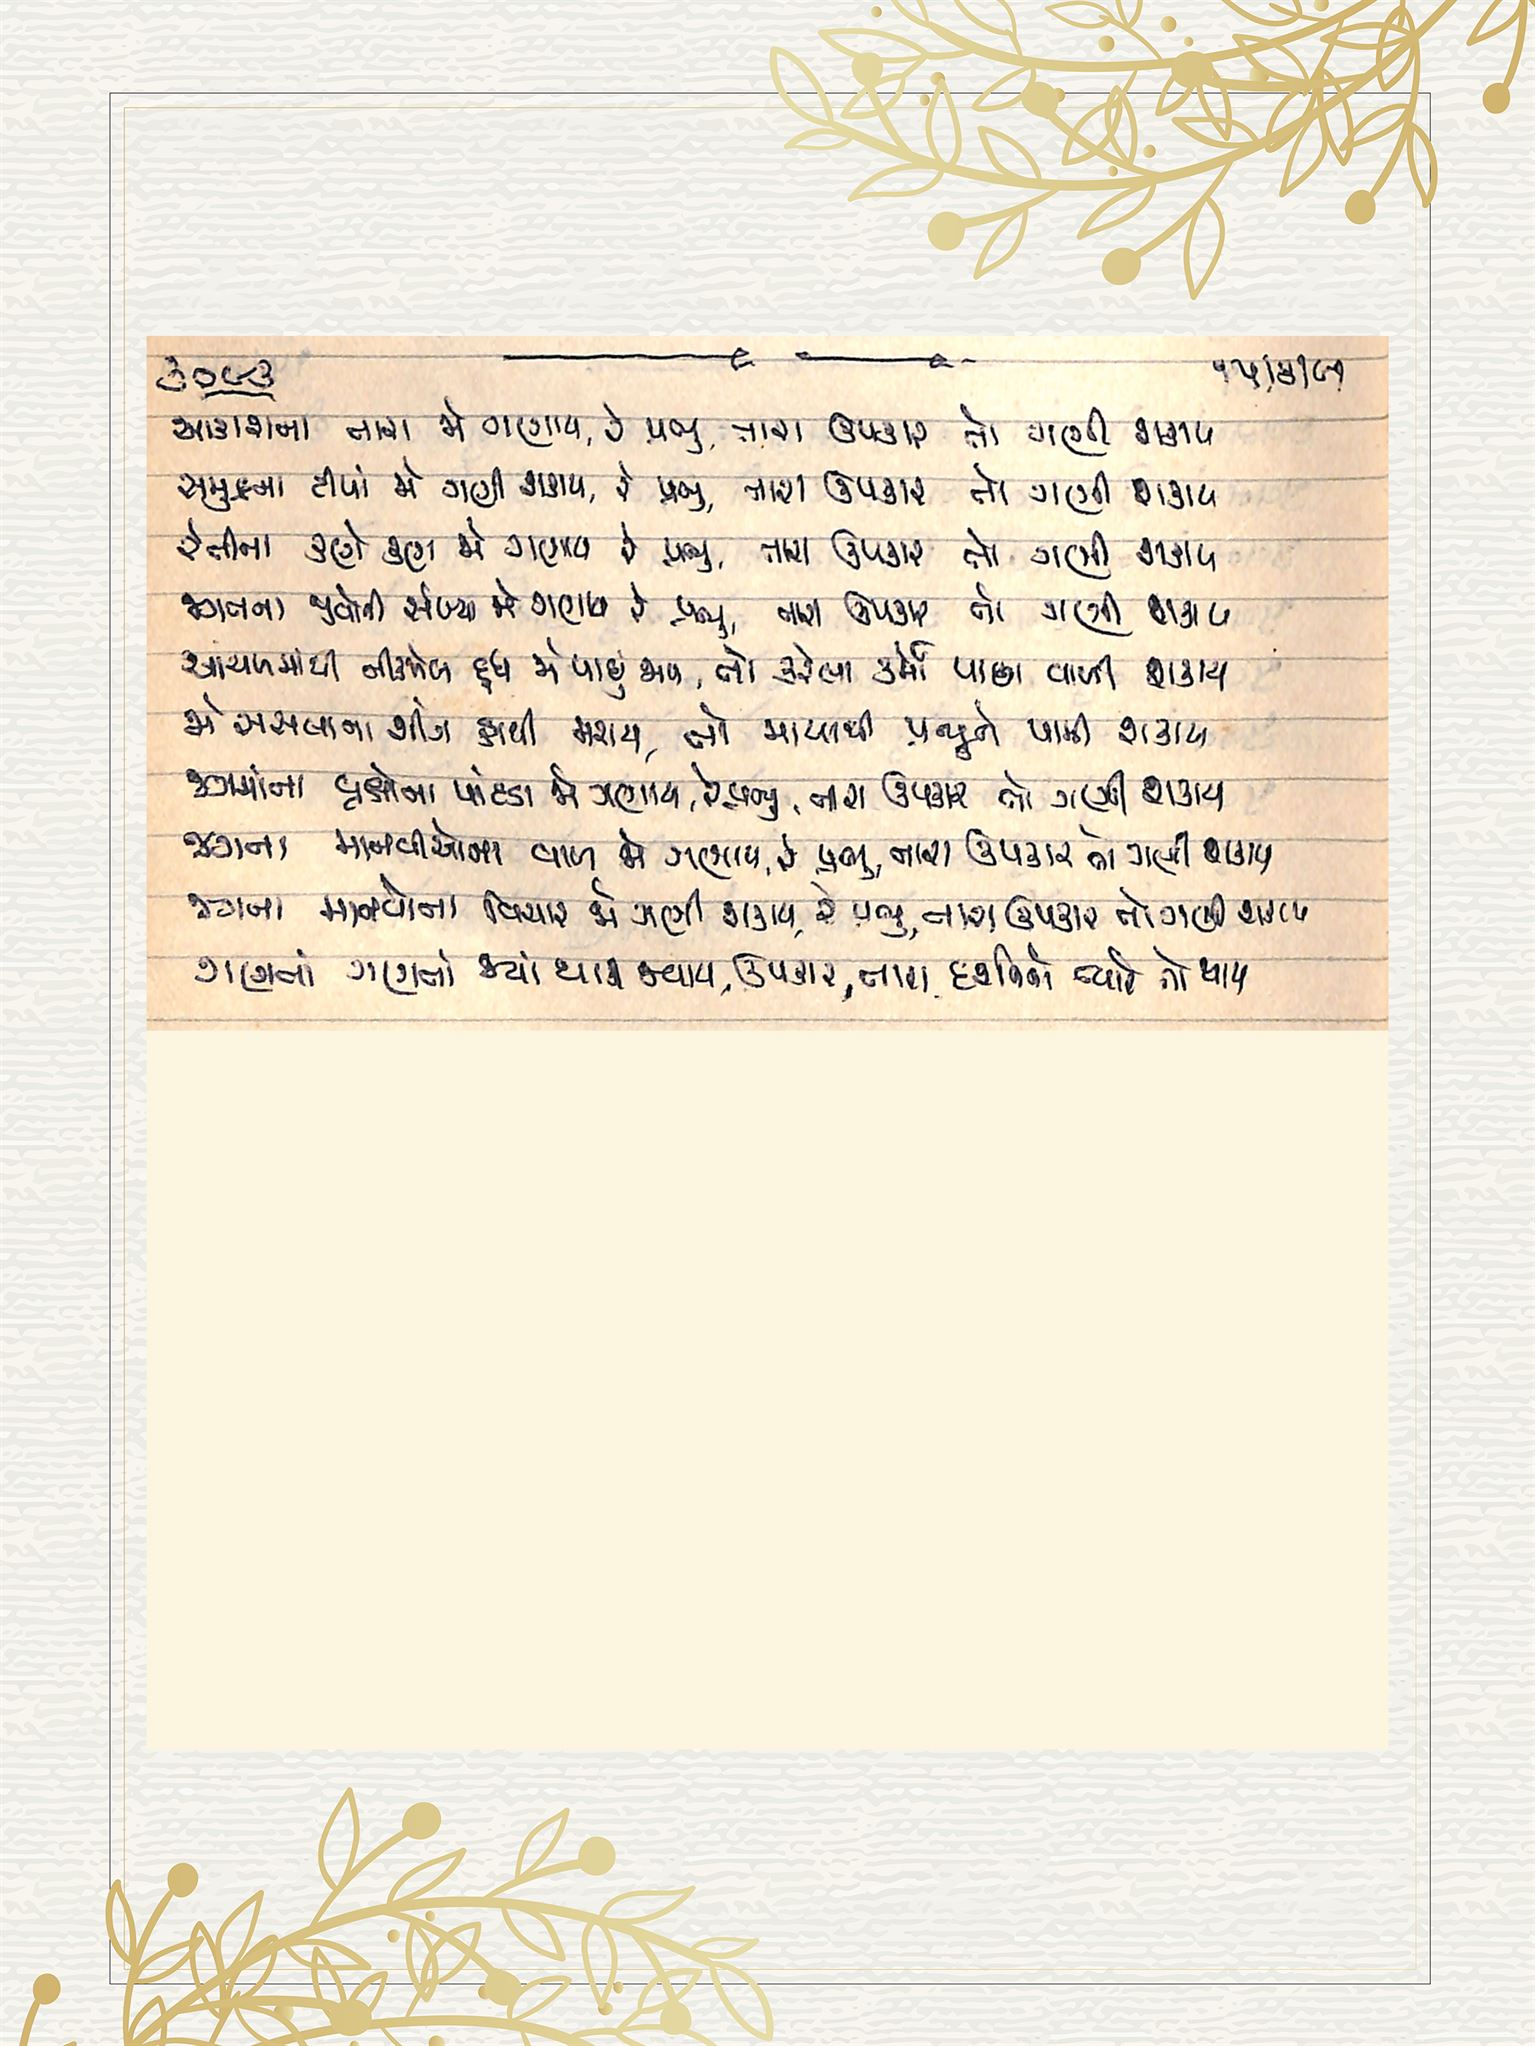 ૩૦૯૩ ૧૫/૩/૯૧
આકાશના તારા જો ગણાય, રે પ્રભુ, તારા ઉપકાર તો ગણી શકાય
સમુદ્રના ટીપાં જો ગણી શકાય, રે પ્રભુ, તારા ઉપકાર તો ગણી શકાય
રેતીના કણે કણ જો ગણાય રે પ્રભુ, તારા ઉપકાર તો ગણી શકાય
જગતના જીવોની સંખ્યા જો ગણાય રે પ્રભુ, તારા ઉપકાર તો ગણી શકાય
આંચળમાંથી નીકળેલ દૂધ જો પાછું જાય, તો કરેલા કર્મો પાછા વાળી શકાય
જો સસલાના શીંગ હાથી મરાય, તો માયાથી પ્રભુને પામી શકાય
જગમાંના વૃક્ષોના પાંદડા જો ગણાય, રે પ્રભુ, તારા ઉપકાર તો ગણી શકાય
જગના માનવીઓના વાળ જો ગણાય, રે પ્રભુ, તારા ઉપકાર તો ગણી શકાય
જગના માનવોના વિચાર જો ગણી શકાય, રે પ્રભુ, તારા ઉપકાર તો ગણી શકાય
ગણતાં ગણતાં જ્યાં થાક જ્યાય, ઉપકાર, તારા ત્યારે તો થાય